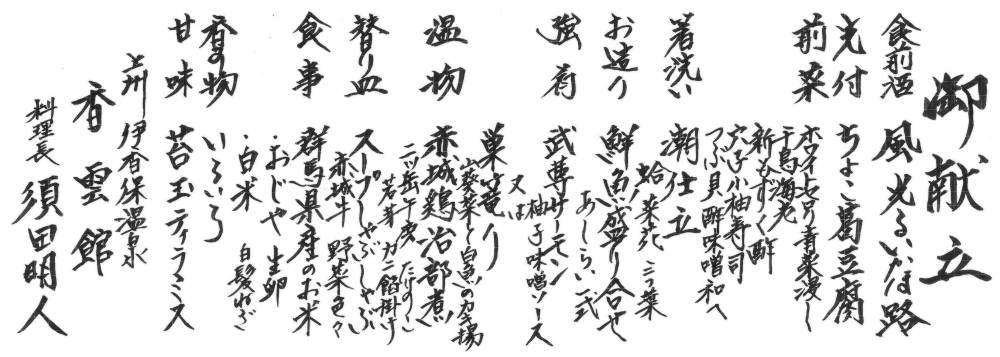 御献立
食前酒 風光るいかほ路
先付 ちょこ葛豆腐
前菜 ホワイトセロリ青菜浸し
千鳥海老
新もずく酢
穴子小袖寿司
つぶ貝酢味噌和へ
箸洗い 潮仕立
蛤 菜花 三つ葉
お造り 鮮魚盛り合せ
あしらい一式
強肴 武尊サーモン
柚子味噌ソース
又は
巣篭り
山菜と白魚のカダ揚
温物 赤城鶏治部煮
二ッ岳午麦 たけのこ
若芽 カニ餡掛け
替り皿 スープしゃぶしゃぶ
赤城牛 野菜色々
食事 群馬県産のお米
・おじや 生卵
・白米 白髪ねぎ
香の物 いろいろ
甘味 苔玉ティラミス
上州 伊香保温泉
香雲館
料理長 須田明人